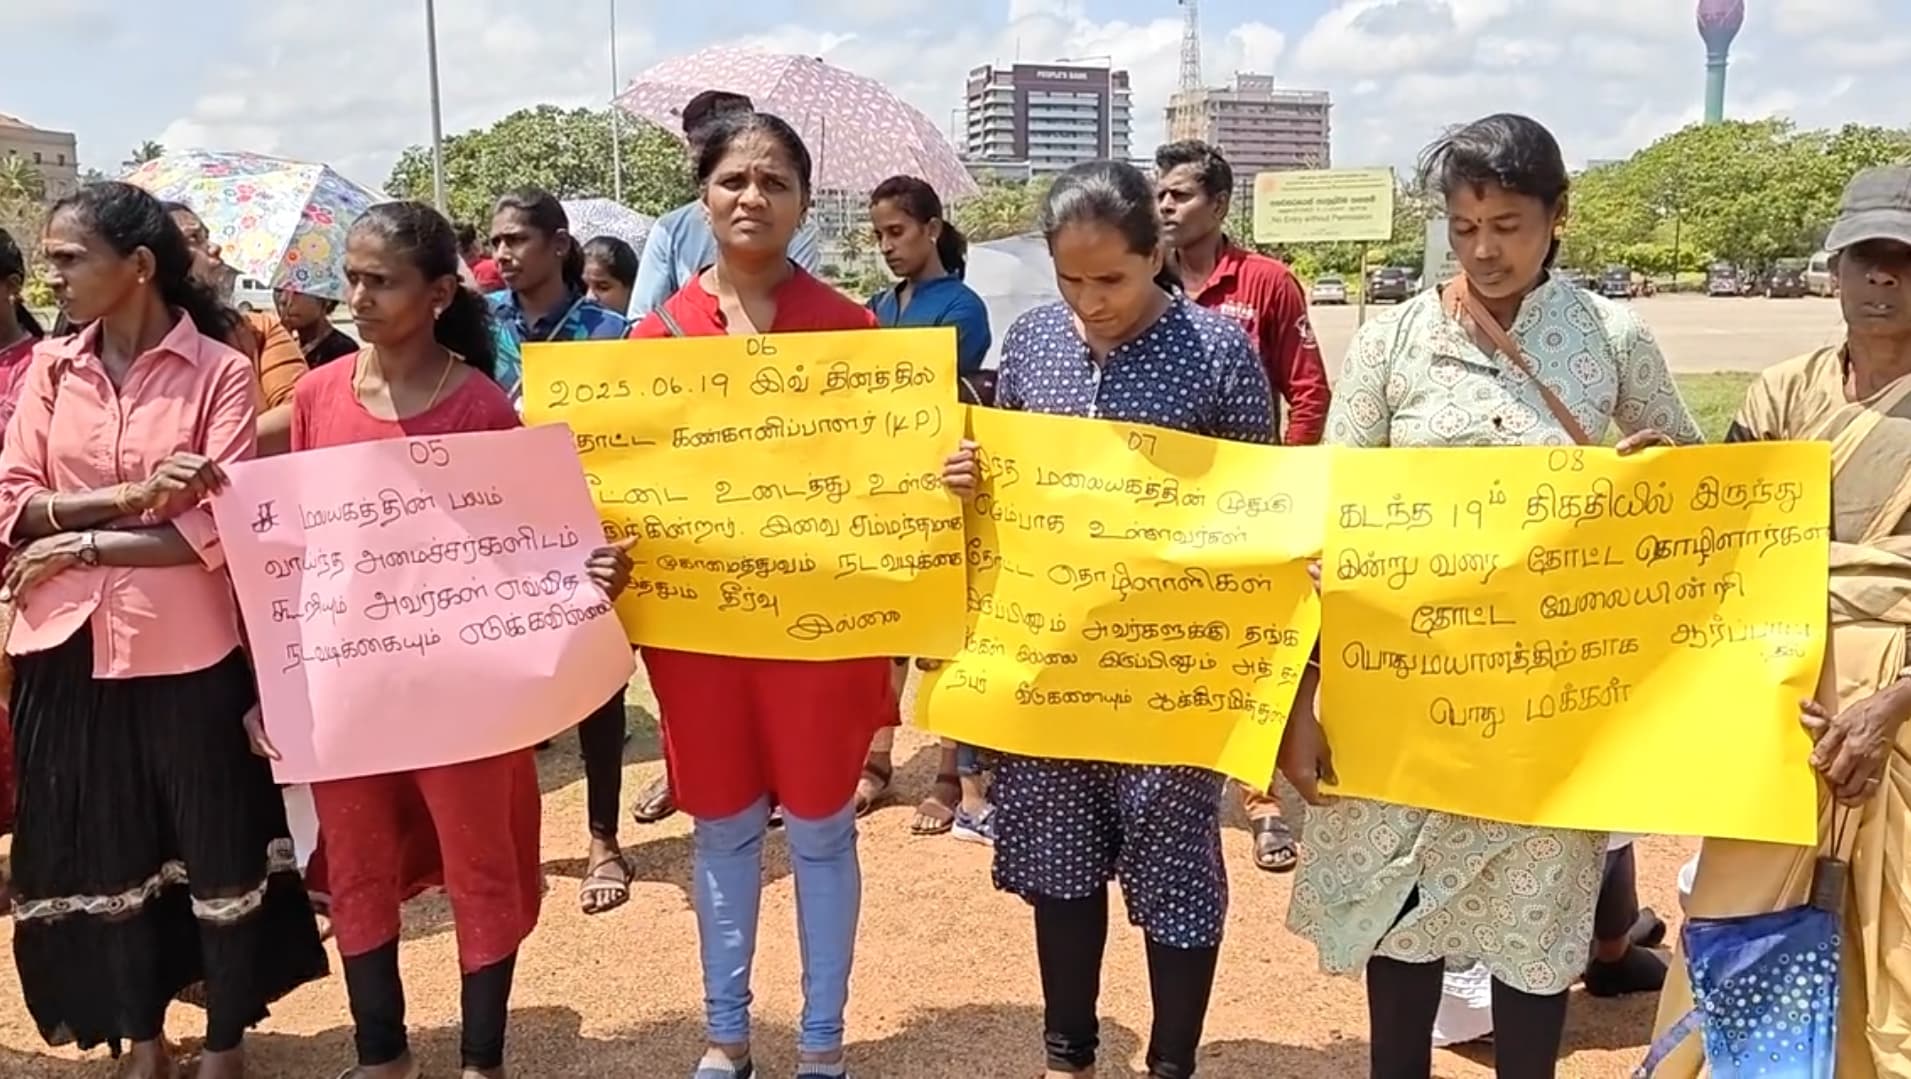 PEOPLE'S BANK
No Entry without Permission
05
# மலையகத்தின் பலம்
வாய்ந்த அமைச்சர்களிடம்
கூறியும் அவர்கள் எவ்வித
நடவடிக்கையும் எடுக்கவில்லை
06
2025.06.19 இவ் தினத்தில்
தோட்ட கண்கானிப்பாளர் (KP)
உடைத்து உள்ளே
இருக்கின்றார். இவை சம்மந்தமாக
முகாமைத்துவம் நடவடிக்கை
தீர்வு
இல்லை
07
இந்த மலையகத்தின் முதுகு
எலும்பாக உள்ளவர்கள்
தோட்ட தொழிலாளிகள்
இருப்பினும் அவர்களுக்கு தங்க
இல்லை இருப்பினும் அத்
நபர் வீடுகளையும்
08
கடந்த 19ம் திகதியில் இருந்து
இன்று வரை தோட்ட தொழிளார்கள்
தோட்ட வேலையின்றி
பொது மயானத்திற்காக
பொது மக்கள்